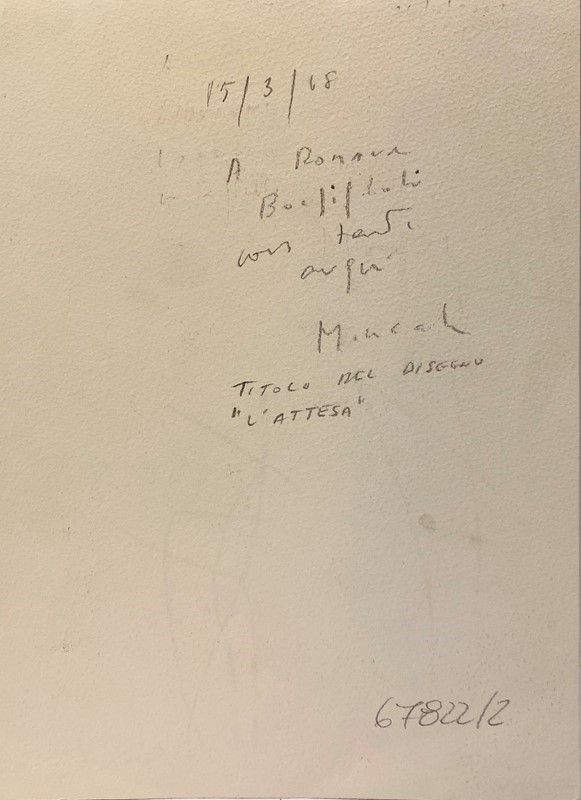 15/3/68
A Romana
con tanti
auguri
TITOLO DEL DISEGNO
"L'ATTESA"
67822/2